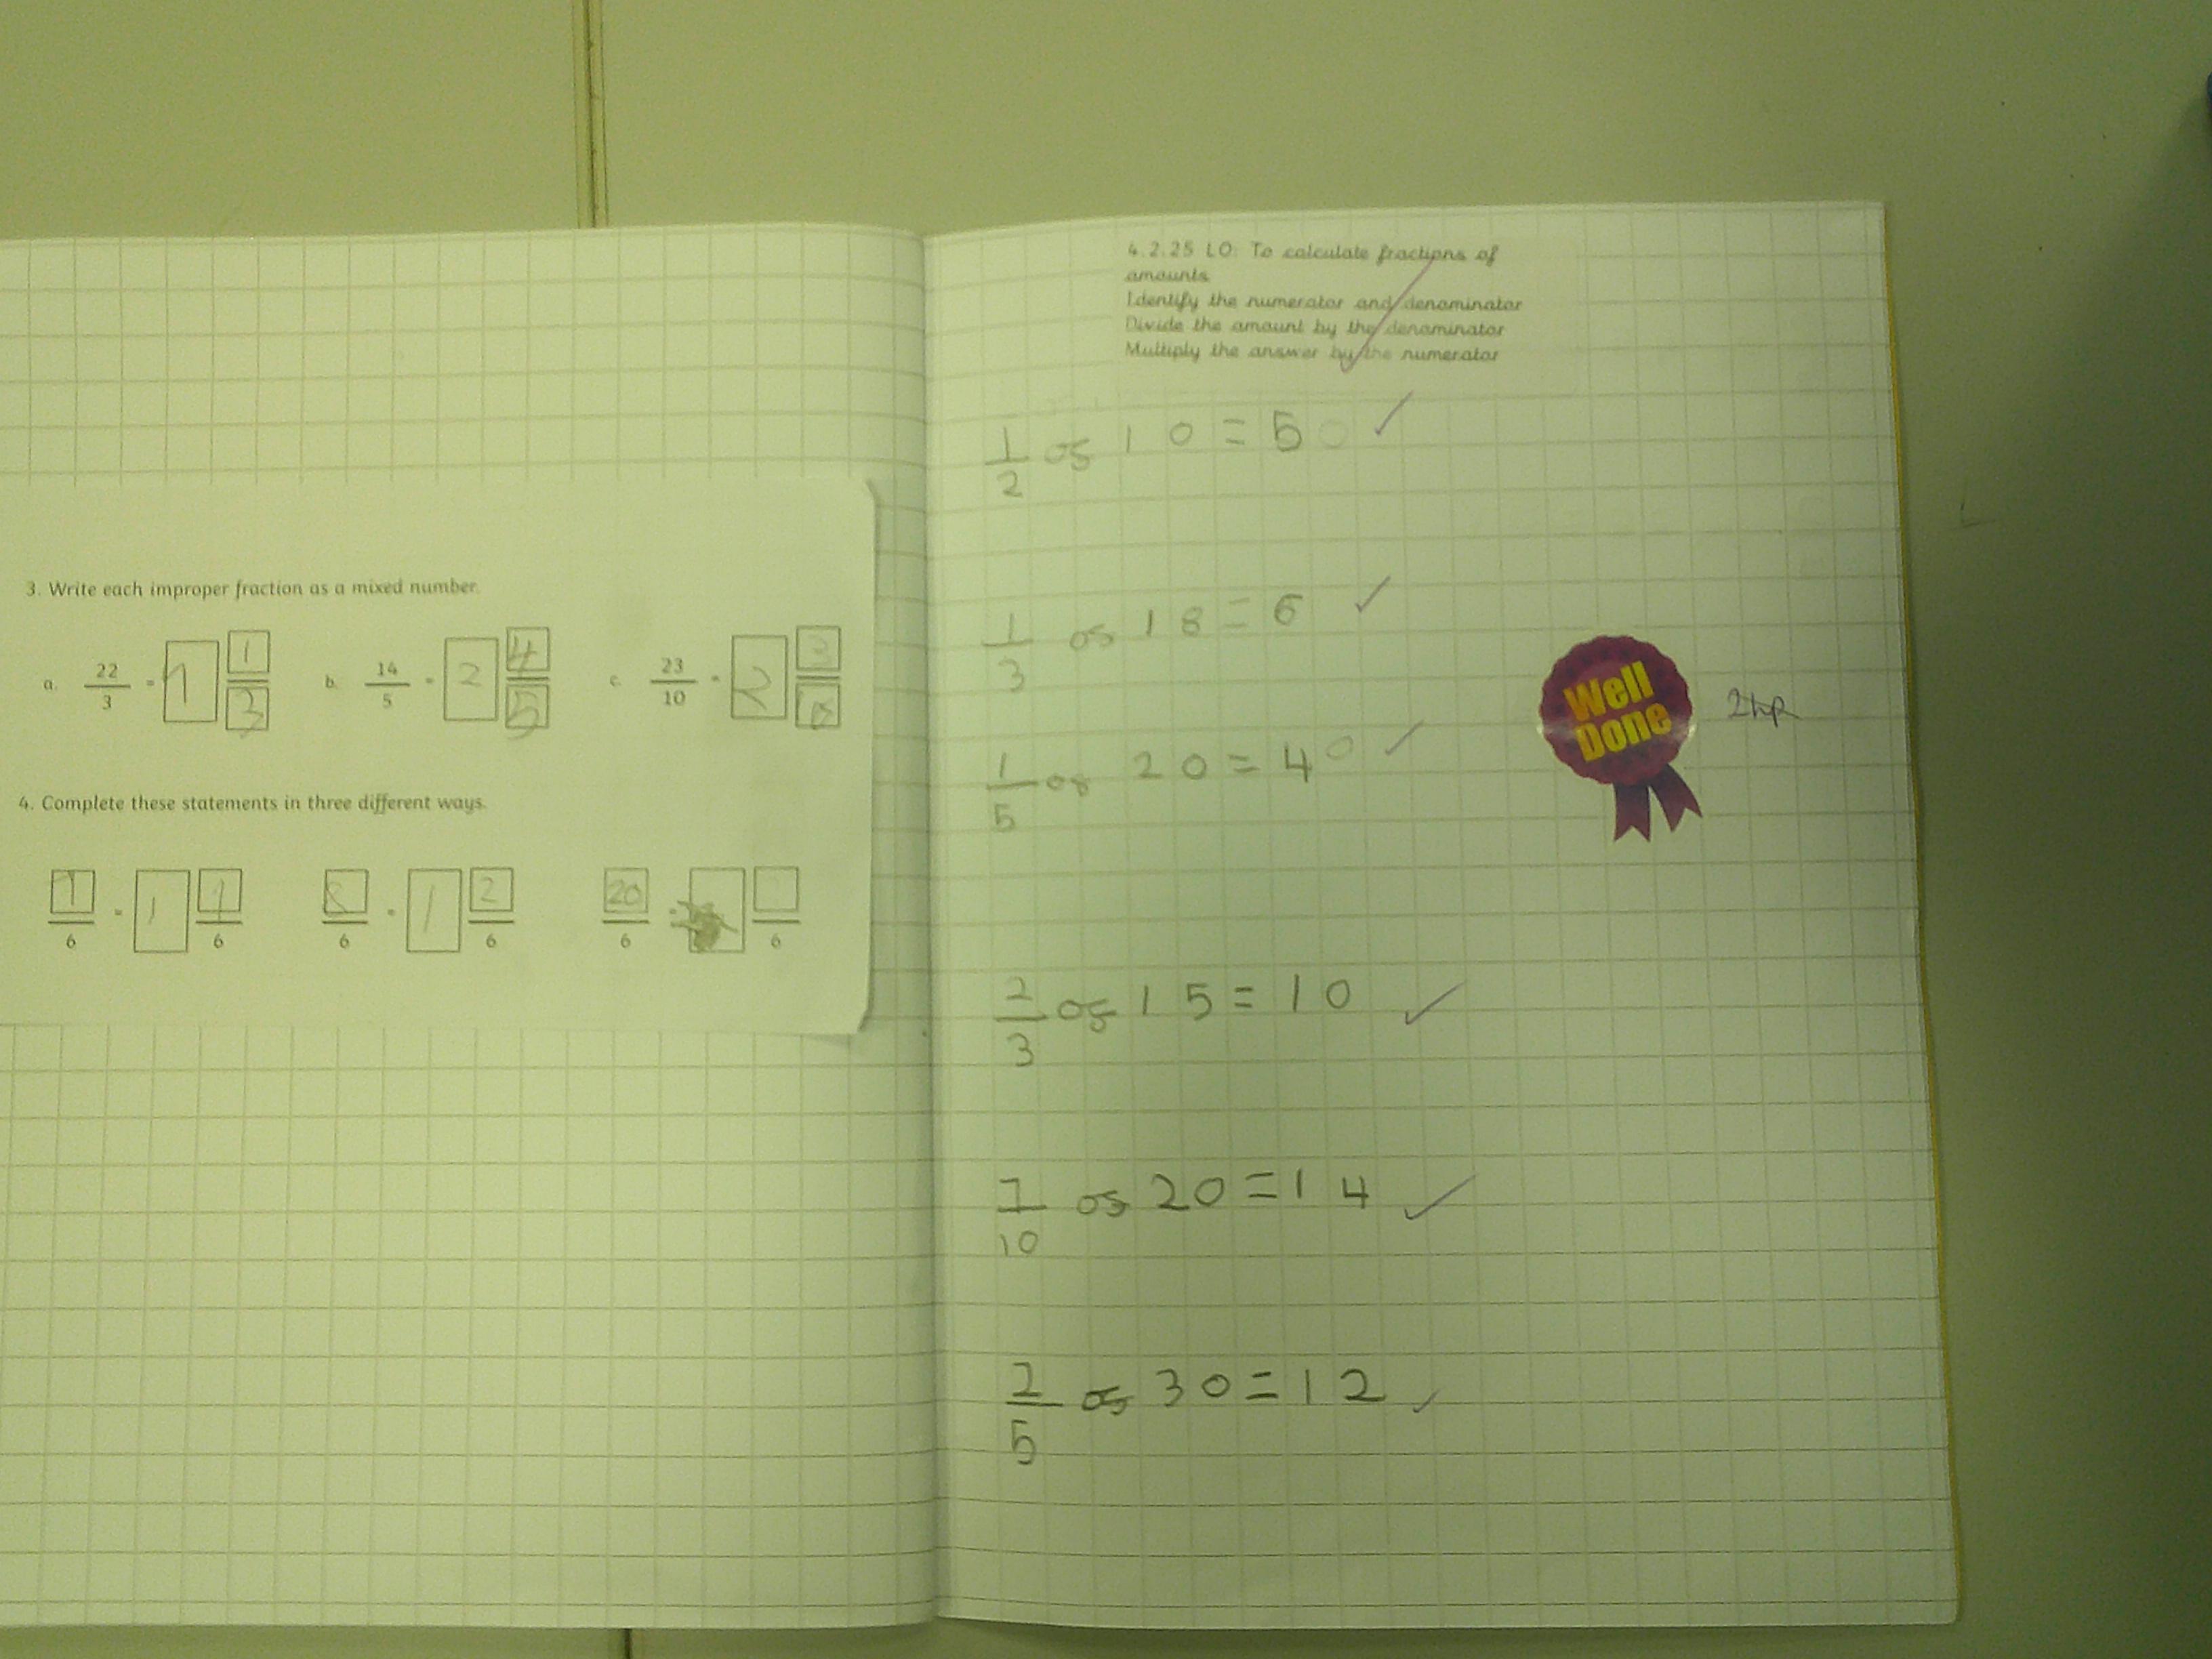 3. Write each improper fraction as a mixed number.
a. 22/3 = 7 1/3 b. 14/5 = 2 4/5 c. 23/10 = 2 3/10
4. Complete these statements in three different ways.
7/6 = 1 1/6 8/6 = 1 2/6 20/6 = /6
4.2.25 LO: To calculate fractions of
amounts
Identify the numerator and denominator
Divide the amount by the denominator
Multiply the answer by the numerator
1/2 of 10 = 5 ✓
1/3 of 18 = 6 ✓
1/5 of 20 = 4 ✓
2/3 of 15 = 10 ✓
7/10 of 20 = 14 ✓
2/5 of 30 = 12 ✓
Well
Done